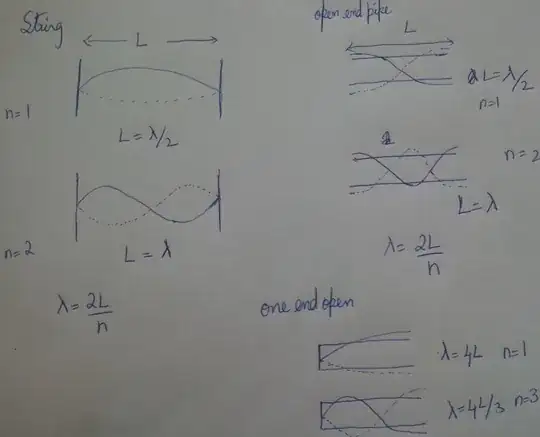 String
L
n=1
L = λ/2
n=2
L = λ
λ = 2L/n
open end pipe
L
L = λ/2
n=1
n=2
L = λ
λ = 2L/n
one end open
λ = 4L n=1
λ = 4L/3 n=3